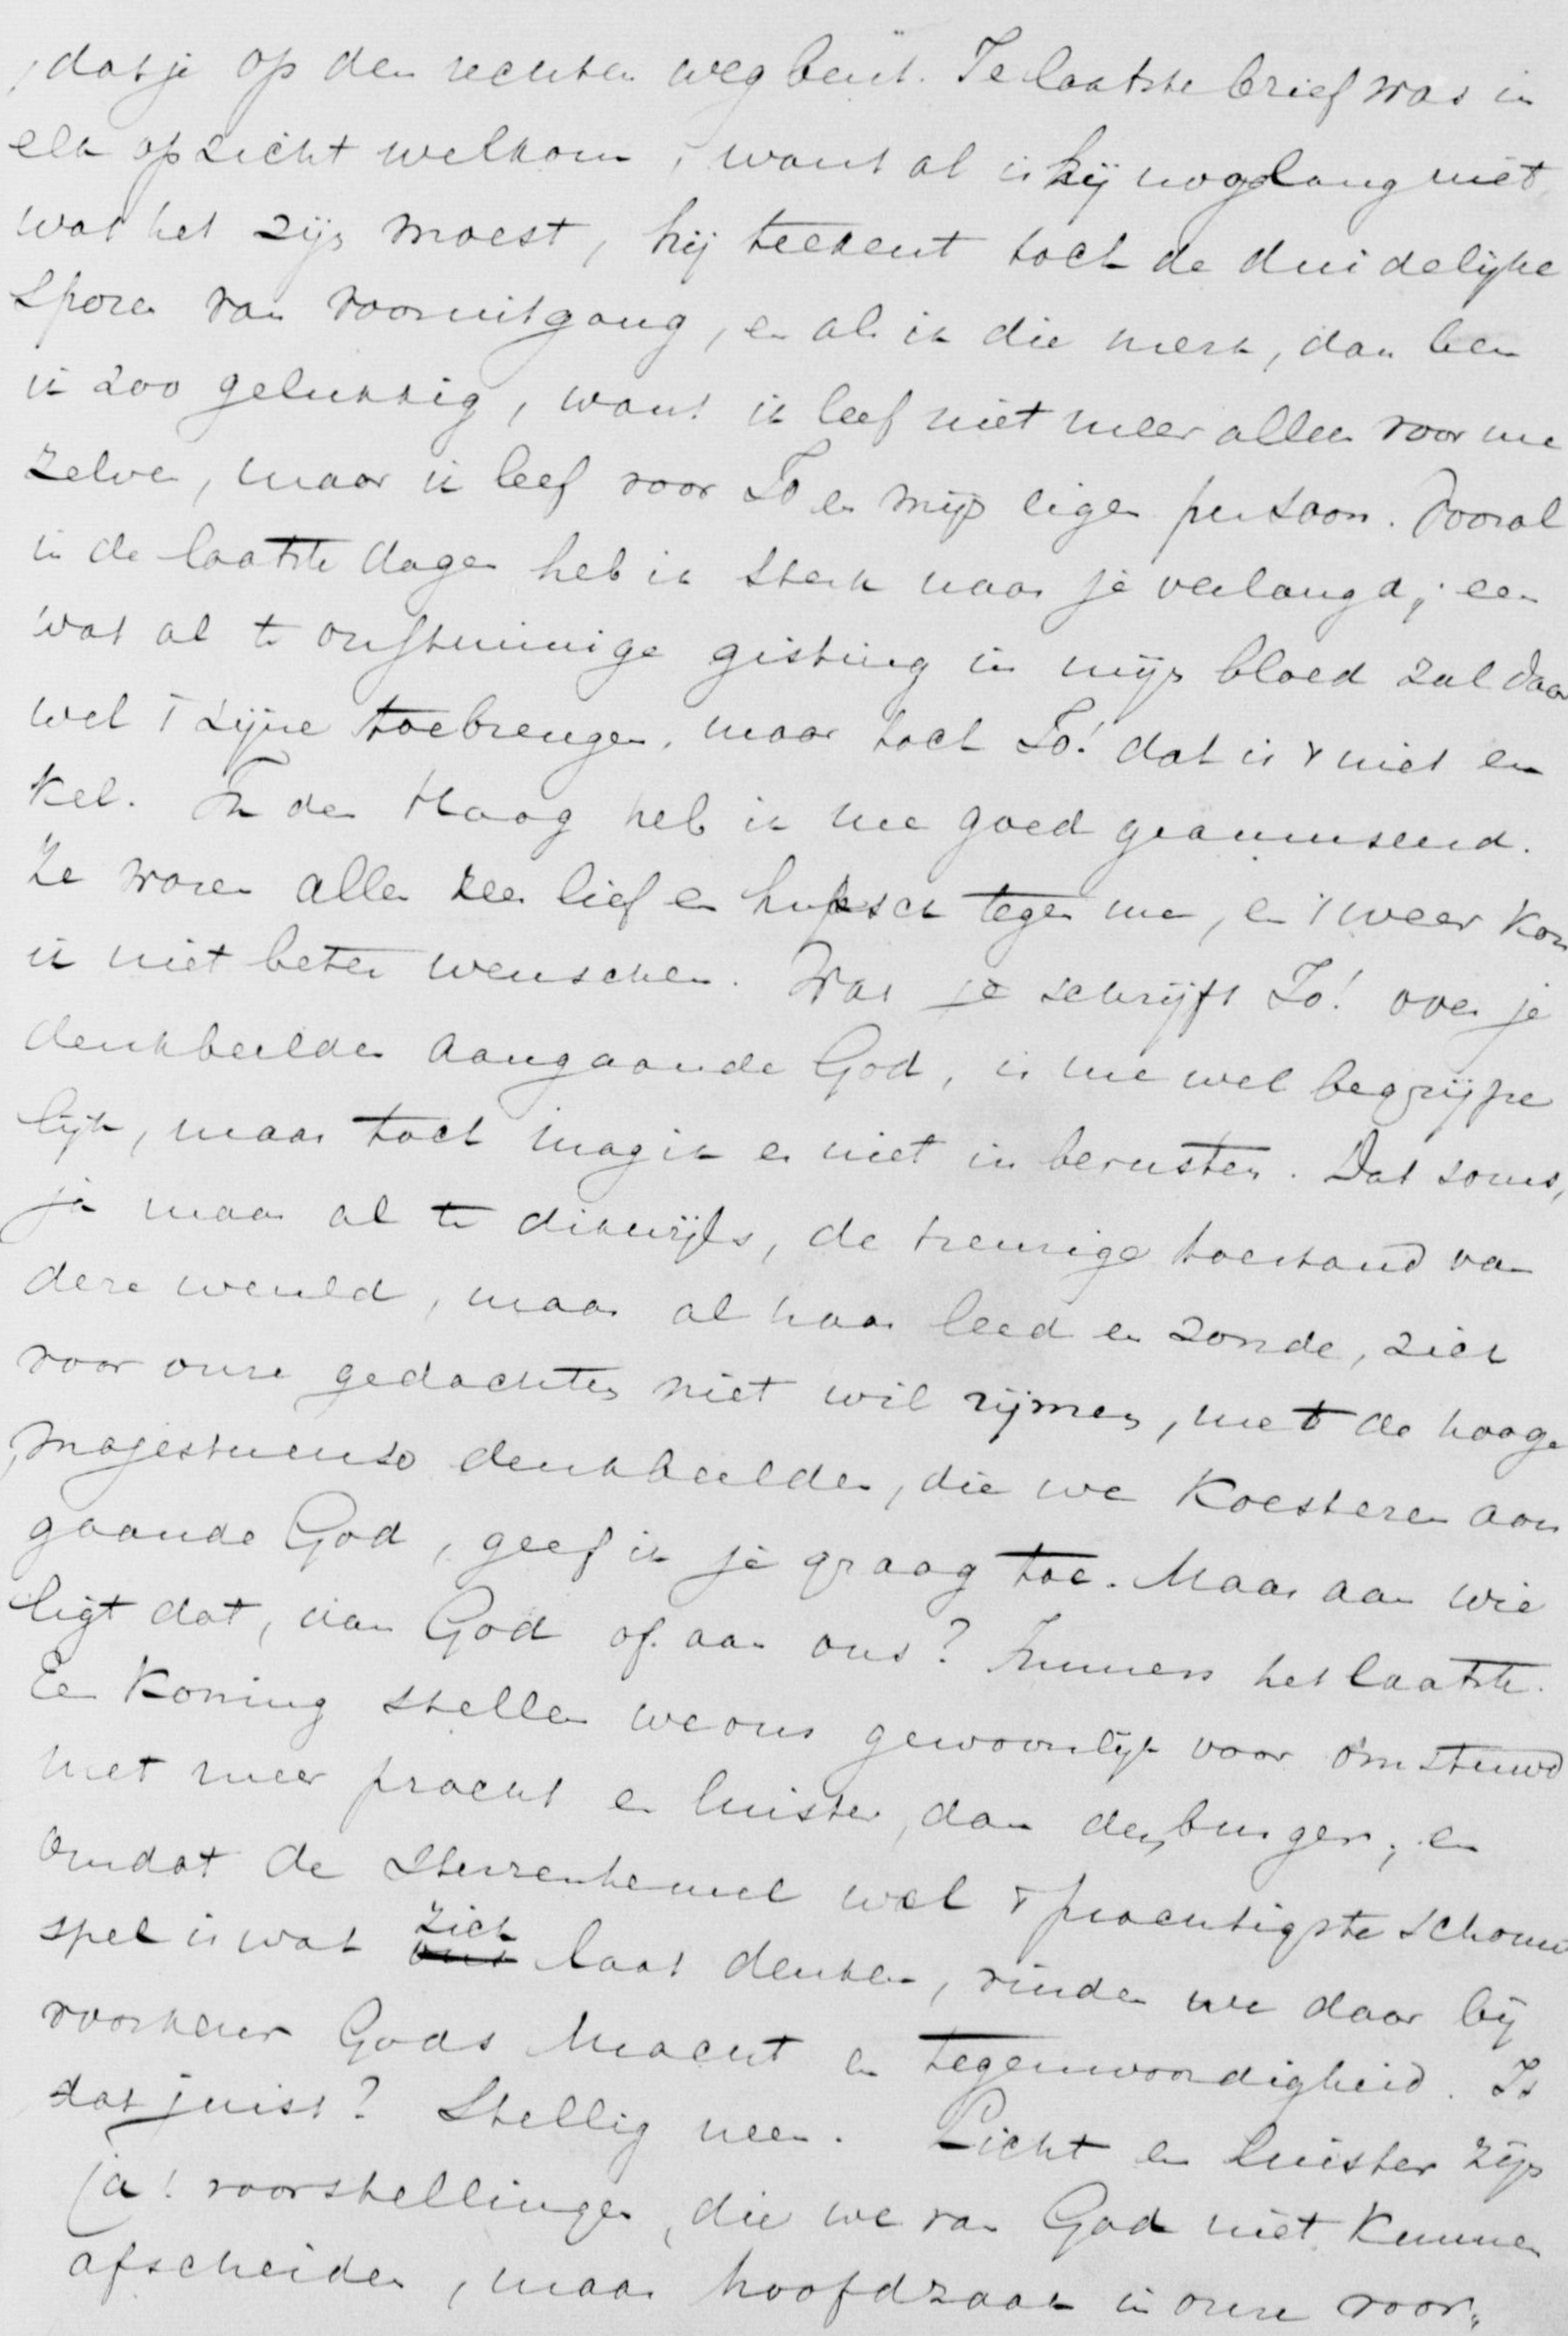 , dat je op den rechten weg bent. Je laatste brief was in
elk opzicht welkom, want al is hij nog lang niet
wat het zijn moest, hij teekent toch de duidelijke
sporen van vooruitgang, en als ik die merk, dan ben
ik zoo gelukkig, want ik leef niet meer alleen voor me
zelven, maar ik leef voor Jo en mijn eigen persoon. Vooral
in de laatste dagen heb ik sterk naar je verlangd; een
wat al te onstuimige gisting in mijn bloed zal daar
wel 't zijne toebrengen, maar toch Jo! dat is 't niet en
kel. In den Haag heb ik me goed geamuseerd.
Ze waren allen zeer lief en hupsch tegen me, en 't weer kon
ik niet beter wenschen. Wat je schrijft Jo! over je
denkbeelden aangaande God, is me wel begrijpe
lijk, maar toch mag ik er niet in berusten. Dat soms,
ja maar al te dikwijls, de treurige toestand van
deze wereld, maar al haar leed en zonde, zich
voor onze gedachten niet wil rijmen, met de hooge
majestueuse denkbeelden, die we koesteren aan
gaande God, geef ik je graag toe. Maar aan wie
ligt dat, aan God of aan ons? Immers het laatste.
Een Koning stellen we ons gewoonlijk voor omstuwd
met meer pracht en luister, dan den burger, en
omdat de sterrenhemel wel 't prachtigste schouw
spel is wat zich laat denken, vinden we daar bij
voorkeur Gods Macht en tegenwoordigheid. Is
dat juist? Stellig neen. Licht en luister zijn
ja! voorstellingen, die we van God niet kunnen
afscheiden, maar hoofdzaak in onze voor„